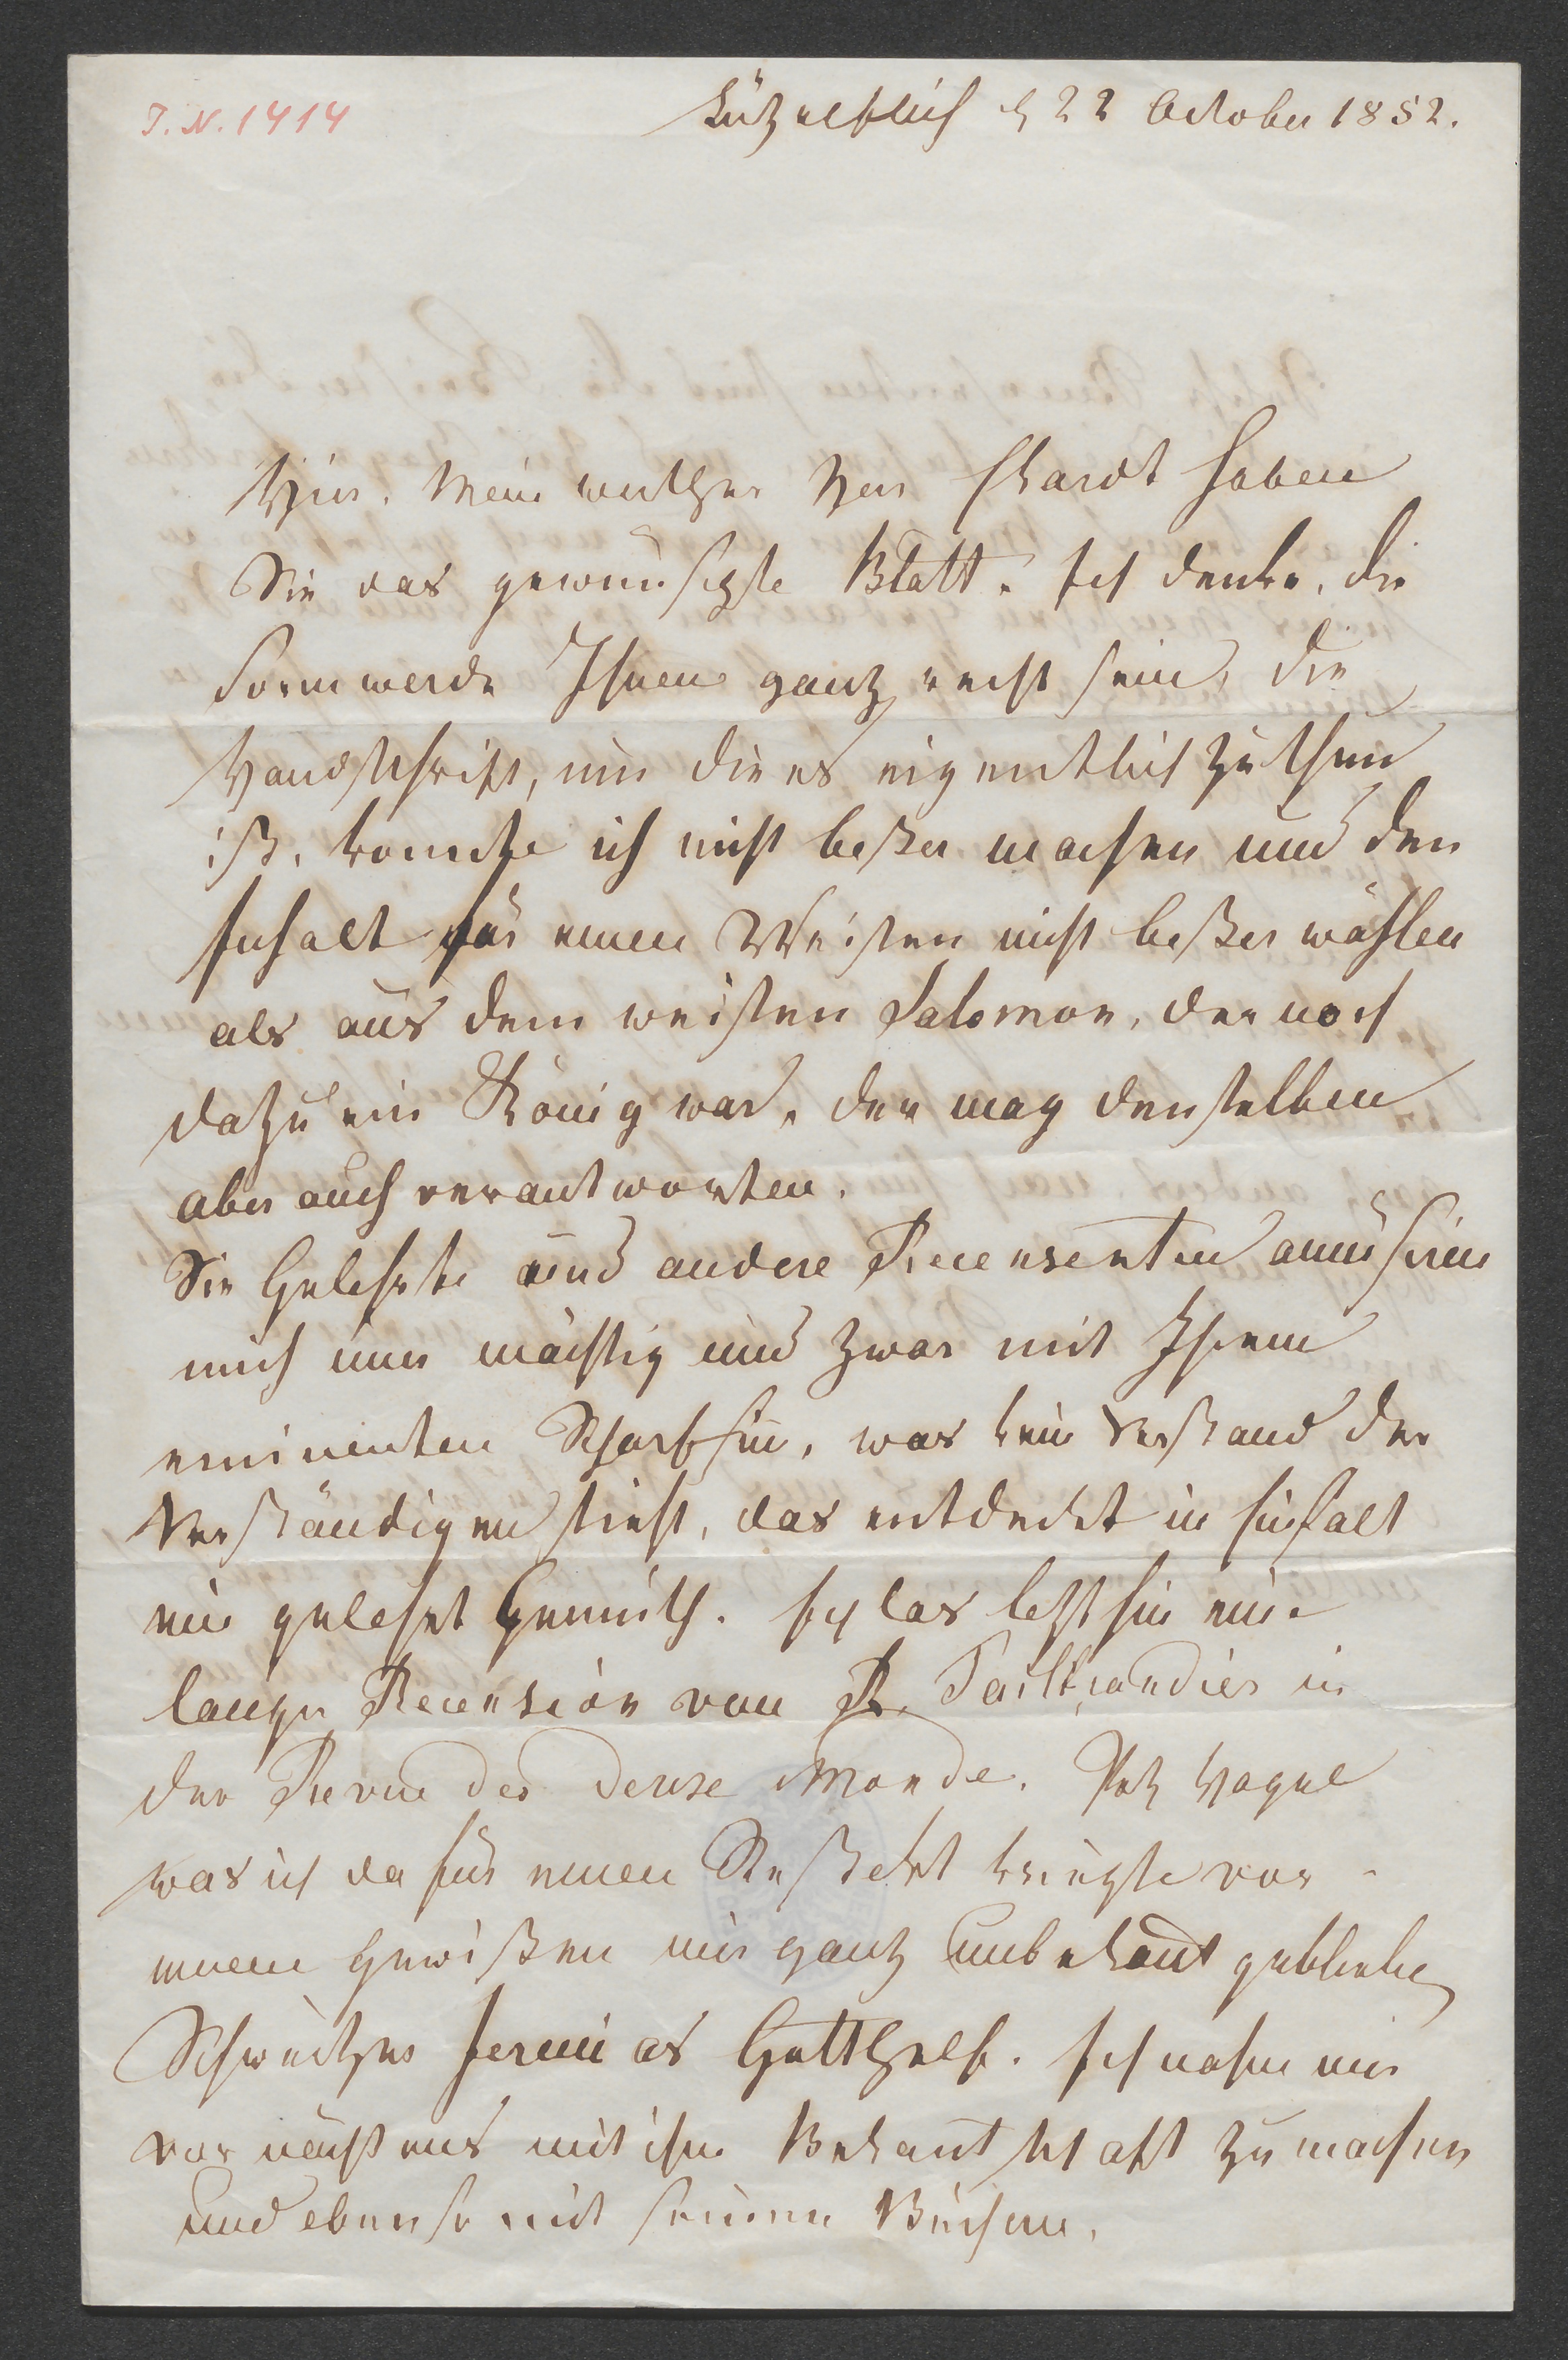 J. N. 1414
Lützelflüh d 22 October 1852.
Hier, mein werther Herr Ekardt haben
Sie das gewünschte Blatt. Ich denke, die
Form werde Ihnen ganz recht sein, die
Handschrift, um die es eigentlich zu thun
ist, konnte ich nicht beßer machen und den
Inhalt für einen Weisen nicht beßer wählen
als aus dem weisen Salomon, der noch
dazu ein König war, der mag denselben
aber auch verantworten.
Sie Gelehrte und andere Recensenten amusiren
mich nun mächtig und zwar mit Ihrem
eminenten Scharfsin̄, was kein Verstand der
Verständigen sieht, das entdeckt in Einfalt
ein gelehrt Gemüth. Ich las letzthin eine
lange Recension von R. Taillandier in
der Revue des deuxe Monde. Potz Hagel
was ich da für einen Reßpekt kriegte vor
einem gewißen mir ganz unbekan̄t gebliebenen
Schweitzer Jeremias Gotthelf. Ich nahm mir
vor nächstens mit ihm Bekan̄tschaft zu machen
und ebenso mit seinen Büchern.